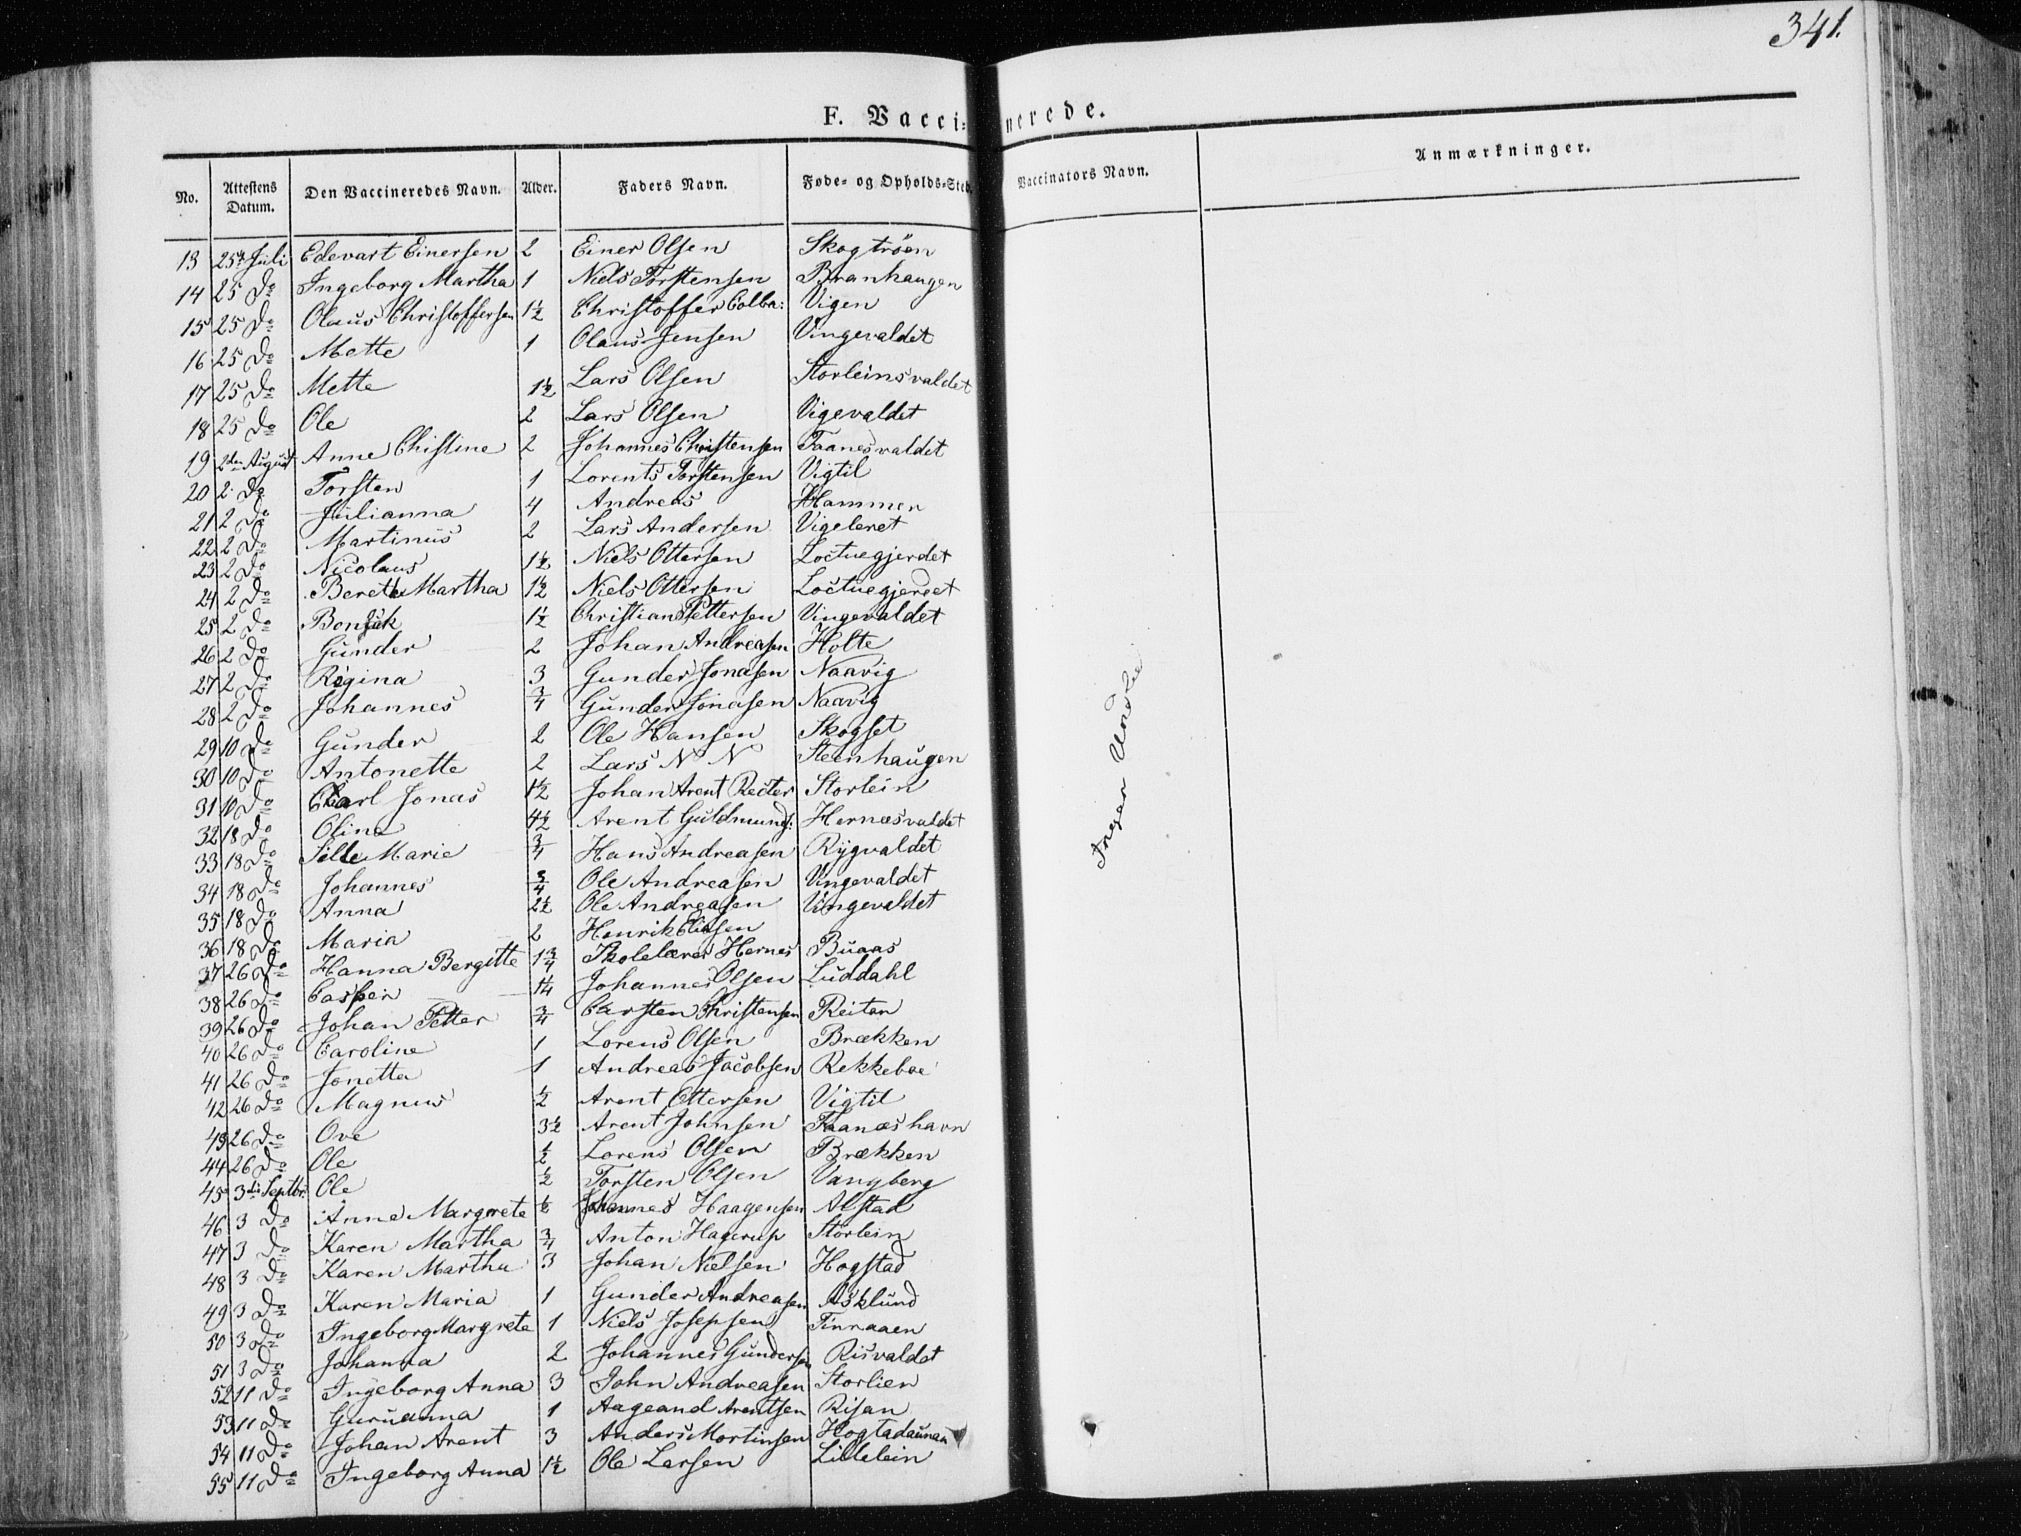 341.
F. Vaccinerede.
No. Attestens Datum. Den Vaccineredes Navn. Alder. Faders Navn. Føde- og Opholds-Sted. Vaccinators Navn. Anmærkninger.
13 25de Juli Edevart Einersen 2 Einer Olsen Skogtröen
14 25 Do Ingeborg Martha 1 Niels Torstensen Branhaugen
15 25 Do Olaus Christoffersen 1½ Christoffer Colba: Vigen
16 25 Do Mette 1 Olaus Jensen Vingevaldet
17 25 Do Mette 1½ Lars Olsen Storleinsvaldet
18 25 Do Ole 2 Lars Olsen Vigevaldet
19 2den August Anne Chistine 2 Johannes Christensen Faanesvaldet
20 2. Do Torsten 1 Lorents Torstensen Vigtil
21 2 Do Julianna 4 Andreas Hammer
22 2 Do Martinus 2 Lars Andersen Vigeleret
23 2 Do Nicolaus 1½ Niels Ottersen Loctuegjerdet
24 2 Do Berete Martha 1½ Niels Ottersen Loctuegjerdet
25 2 Do 1½ Christian Pettersen Vingevaldet
26 2 Do Gunder 2 Johan Andreasen Holte
27 2 Do Regina 3 Gunder Jonasen Naavig
28 2 Do Johannes ¾ Gunder Jonasen Naavig
29 10 Do Gunder 2 Ole Hansen Skogset
30 10 Do Antonette 2 Lars N N Steenhaugen
31 10 Do Carl Jonas 1½ Johan Arent Recter Storlein
32 18 Do Olina 4½ Arent Guldmunds: Hernæsvaldet
33 18 Do Sille Marie ¾ Hans Andreasen Rygvaldet
34 18 Do Johannes ¾ Ole Andreasen Vingevaldet
35 18 Do Anna 2½ Ole Andreasen Vingevaldet
36 18 Do Maria 2 Henrik Eliasen
37 26 Do Hanna Bergitte 1¾ Skolelærer Hernes Buaas
38 26 Do Casper 1¼ Johannes Olsen Luddahl
39 26 Do Johan Petter ¾ Carsten Christensen Reitan
40 26 Do Caroline 1 Lorens Olsen Brækken
41 26 Do Jonetta 1 Andreas Jacobsen Rekkeboe
42 26 Do Magnus ½ Arent Ottersen Vigtil
43 26 Do Ove 3½ Arent Johnsen Faanæshavn
44 26 Do Ole ½ Lorens Olsen Brækken
45 3die Septbr: Ole ½ Torsten Olsen Vangberg
46 3 Do Anne Margrete ½ Johannes Haagensen Alstad
47 3 Do Karen Martha ¾ Anton Hagerup Storlein
48 3 Do Karen Martha 3 Johan Nielsen Hogstad
49 3 Do Karen Maria 1 Gunder Andreasen Asklund
50 3 Do Ingeborg Margrete 1 Niels Josepsen Finnaaen
51 3 Do Johanna 2 Johannes Gundersen Risvaldet
52 11 Do Ingeborg Anna 3 John Andreasen Storlien
53 11 Do Guruanna 1 Aageand Arentsen Risan
54 11 Do Johan Arent 3 Anders Mortinsen Hogtadaunan
55 11 Do Ingeborg Anna 1½ Ole Larsen Lillelein
Inger